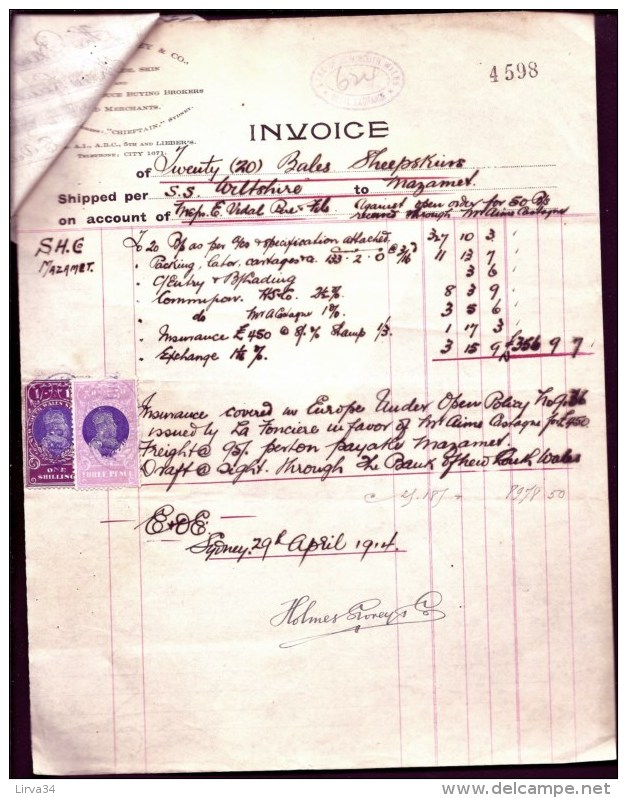 & CO.,
SKIN
BUYING BROKERS
MERCHANTS.
"CHIEFTAIN," SYDNEY.
A.I., A.B.C., 5TH AND LIEBER'S.
TELEPHONE, CITY 1671.
4598
INVOICE
of Twenty (20) Bales Sheepskins
Shipped per S.S. Wiltshire to Mazamet
on account of Messrs. E. Vidal Pere & Fils Against open order for 50 B/s
received through Mr Aime Castagne
S H C
MAZAMET.
To 20 B/s as per specification attached 327 10 3
" Packing, labor, cartages &c. 133 . 2 . 0 @ 11 13 7
" C/Entry & B/Lading 3 6
" Commission 8 3 9
" do Mr A Castagne 1% 3 5 6
" Insurance £450 @ Stamp 1/3 1 17 3
" Exchange 3 15 9 £356 9 7
Insurance covered in Europe Under Open Policy No
issued by La Fonciere in favor of Mr Aime Castagne for £450
Freight @ per ton payable Mazamet.
Draft @ Sight through The Bank of New South Wales
E & O E.
Sydney, 29th April 1914.
Holmes & Co
1/-
ONE
SHILLING
THREE PENCE
Lirva34
delcampe.net